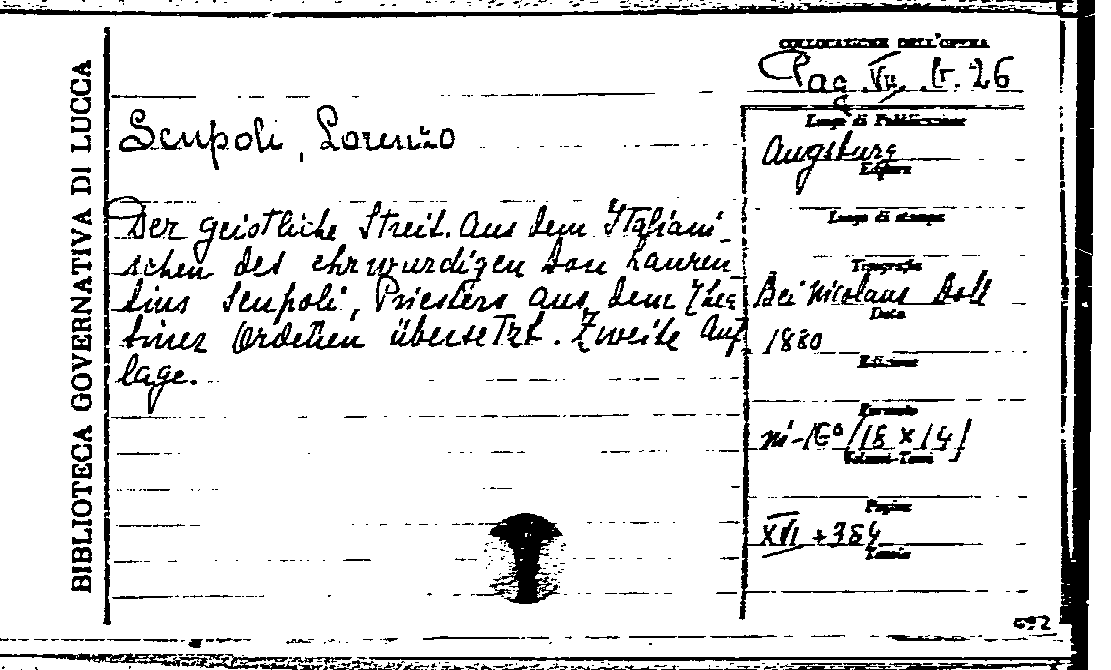 BIBLIOTECA GOVERNATIVA DI LUCCA
COLLOCAZIONE DELL'OPERA
Pag. VII. b. 26
Scupoli, Lorenzo
Der geistliche Streit. Aus dem Italiani-
schen des ehrwurdigen Don Lauren
tius Scupoli, Priesters aus dem Thea
tiner Ordehen übersetzt. Zweite Auf
lage.
Luogo di Pubblicazione
Augsburg
Editore
Luogo di stampa
Tipografia
Bei Nicolaus Doll
Data
1880
Edizione
Formato
in-16° (18 x 14)
Volumi-Tomi
Pagine
XVI + 384
Tavole